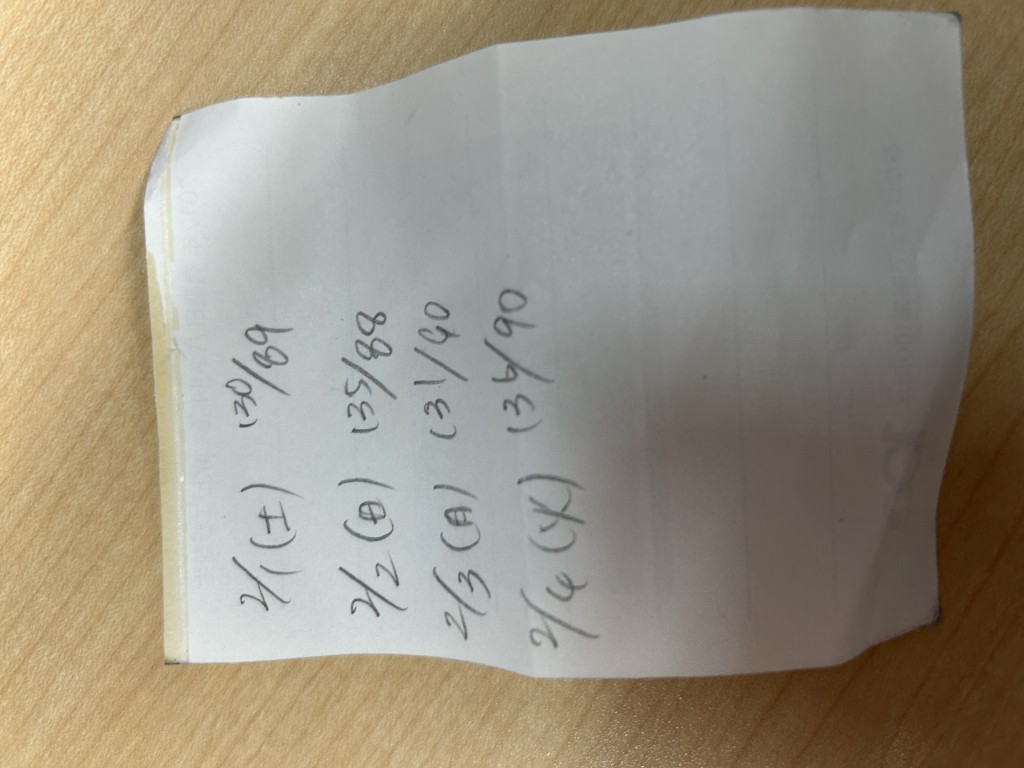 2/1(土) 130/89
2/2(日) 135/88
2/3(月) 131/90
2/4(火) 136/90